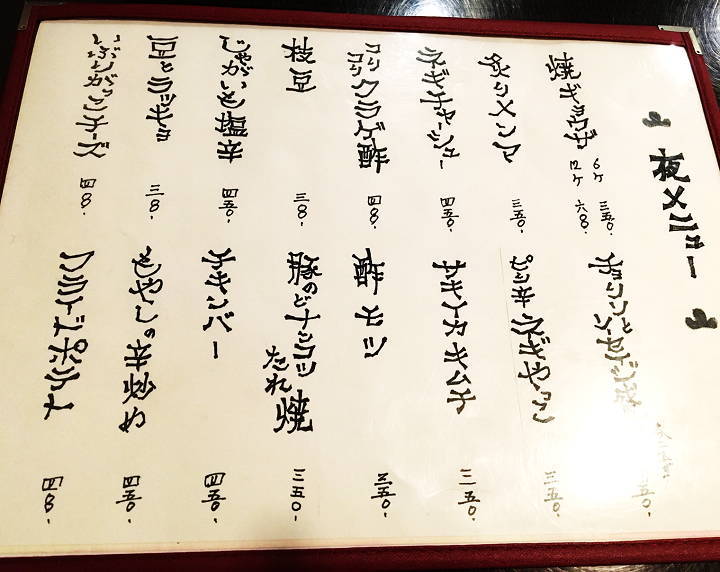 夜メニュー
焼ギョウザ 6ケ 三五〇.
12ケ 六〇〇.
炙りメンマ 三五〇.
ネギチャーシュー 四五〇.
コリコリクラゲ酢 四〇〇.
枝豆 三〇〇.
じゃがいも塩辛 四五〇.
豆とラッキョ 三〇〇.
いぶりがっこチーズ 四〇〇.
チョリソとソーセイジ
ピリ辛ネギやっこ 三五〇.
サキイカキムチ 三五〇.
酢モツ 三五〇.
豚のどナンコツたれ焼 三五〇.
チキンバー 四五〇.
もやしの辛炒め 四五〇.
フライドポテト 四〇〇.